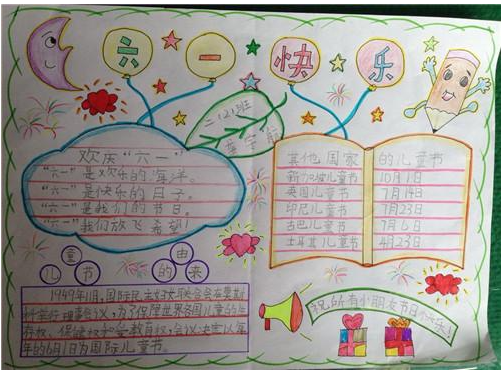 六一快乐
二(2)班
欢庆“六一”
“六一”是欢乐的海洋。
“六一”是快乐的日子。
“六一”是我们的节日。
“六一”我们放飞希望!
其他国家的儿童节
新加坡儿童节 10月1日
英国儿童节 7月14日
印尼儿童节 7月23日
古巴儿童节 7月6日
土耳其儿童节 4月23日
儿童节的由来
1949年11月,国际民主妇女联合会在莫斯
科举行理事会议,为了保障世界各国儿童的生
存权、保健权和受教育权,会议决定以每
年的6月1日为国际儿童节。
祝所有小朋友节日快乐!